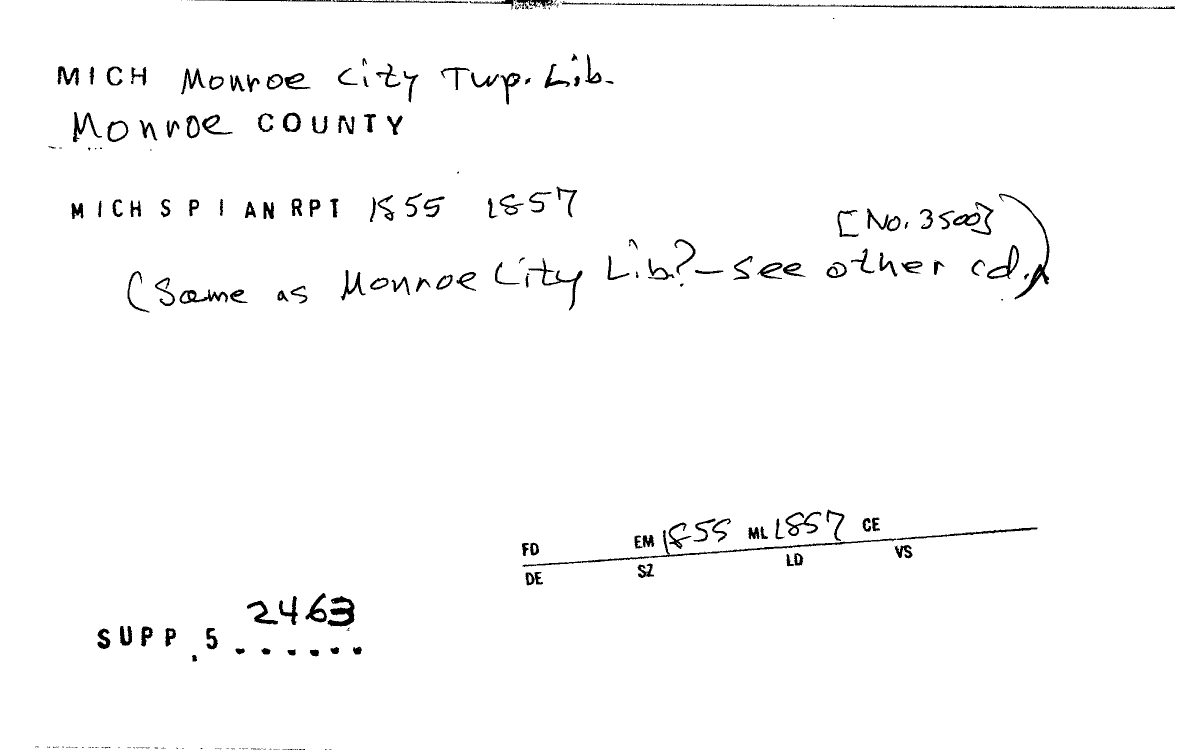 MICH Monroe City Twp. Lib.
Monroe COUNTY
MICH S P I AN RPT 1855 1857
[No. 3500]
(Same as Monroe City Lib.? - see other cd.)
FD EM 1855 ML 1857 CE
DE SZ LD VS
2463
SUPP. 5 ......